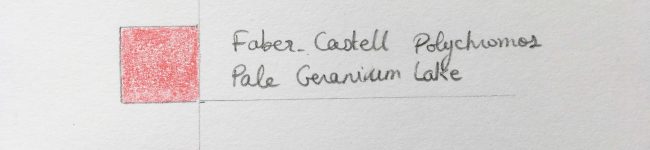 Faber-Castell Polychromos
Pale Geranium Lake